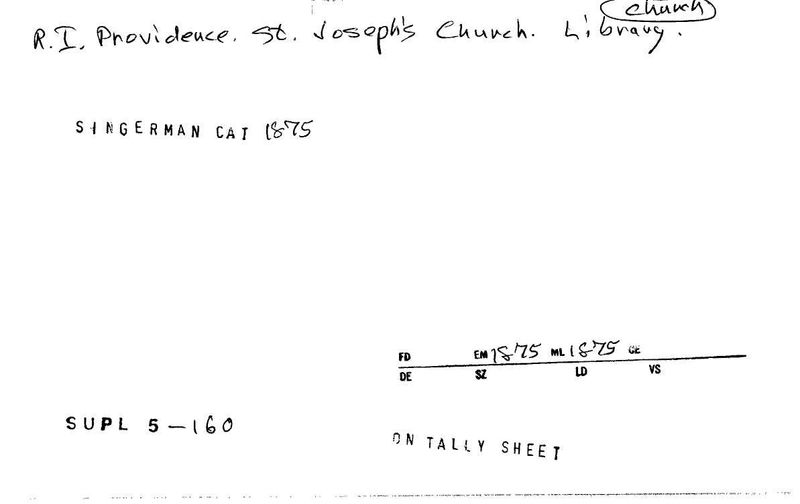 church
R.I. Providence. St. Joseph's Church. Library.
SINGERMAN CAT 1875
FD EM 1875 ML 1875 GE
DE SZ LD VS
SUPL 5-160
ON TALLY SHEET